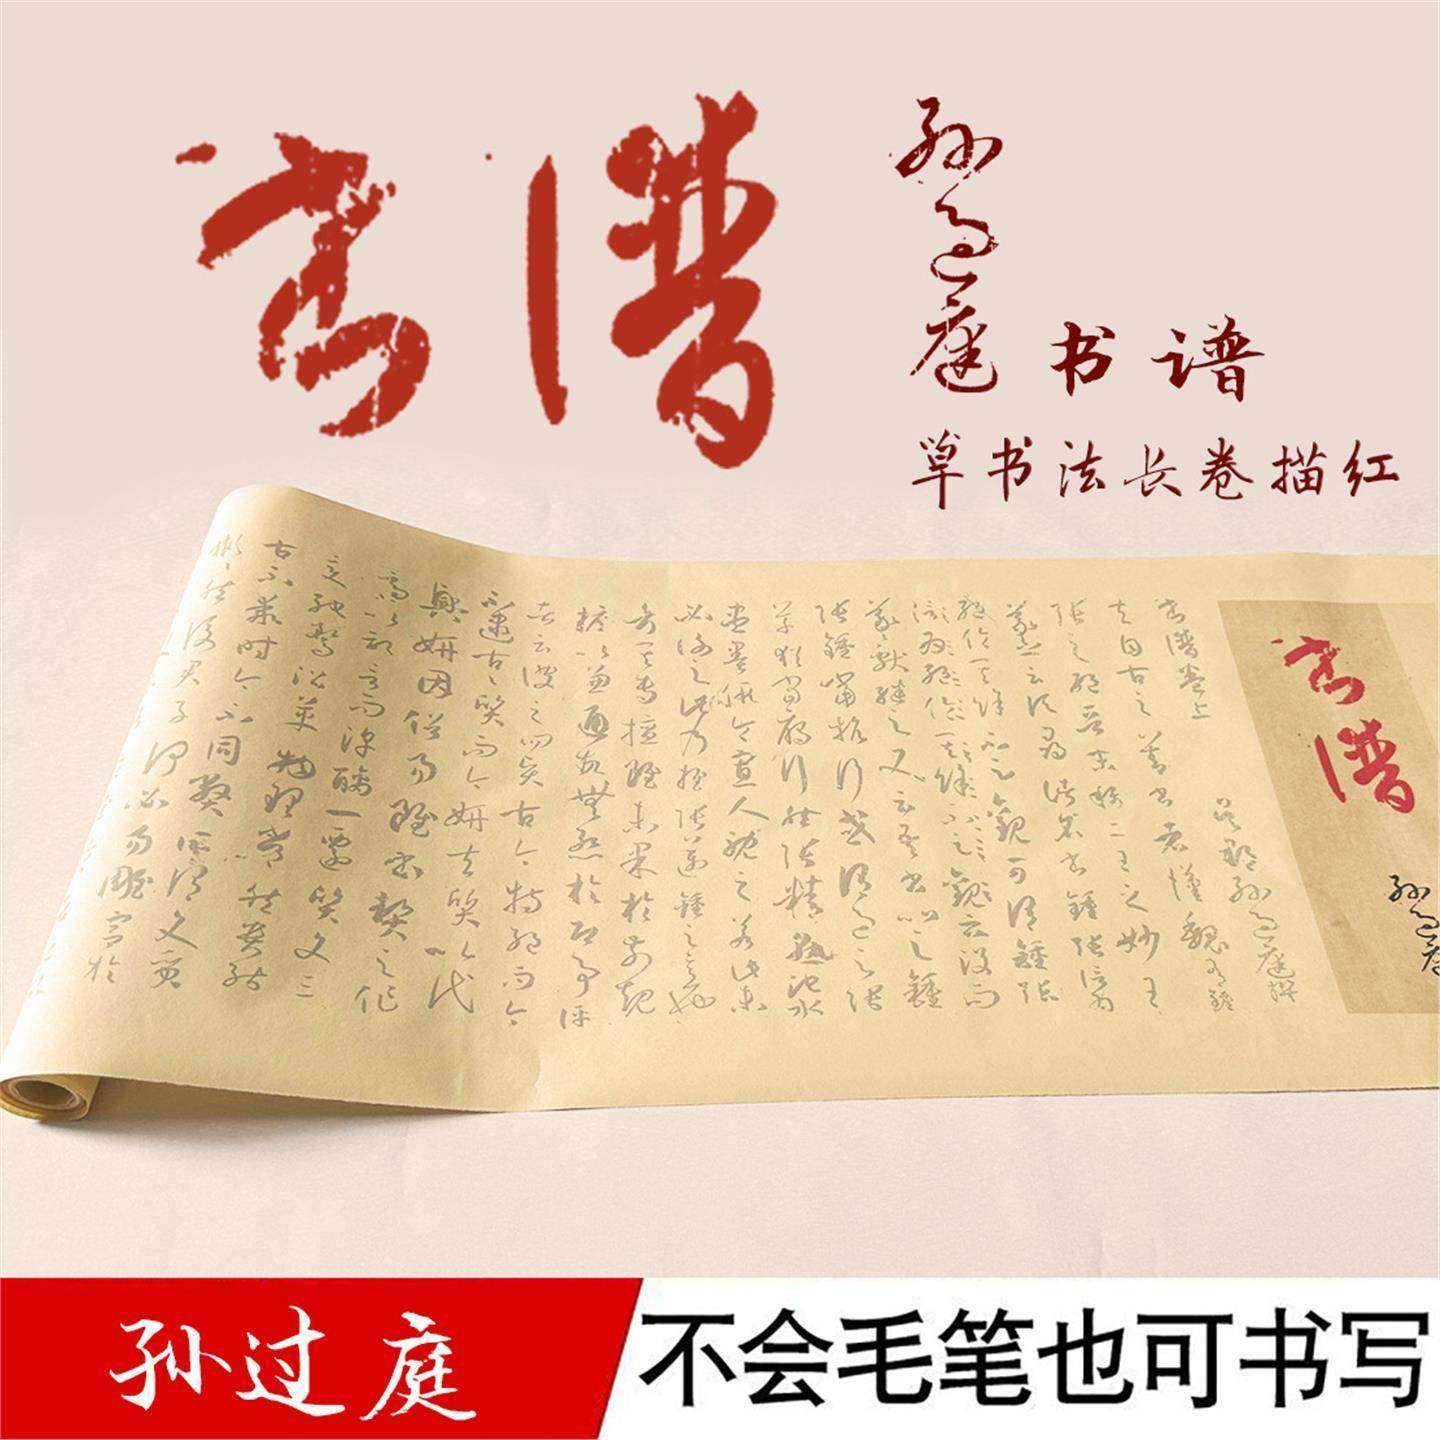 書譜
孙过庭
书谱
草书法长卷描红
書譜
孙过庭
書譜卷上
吳郡孫過庭撰
夫自古之善書者漢魏有鍾
張之絕晉末稱二王之妙王
羲之云頃尋諸名書鍾張信為
絕倫其餘不足觀可謂鍾張
云沒而羲獻繼之又云吾書比之鍾
張鍾當抗行或謂過之張
草猶當雁行然張精熟池水
盡墨假令寡人耽之若此未
必謝之此乃推張邁鍾之意也
考其專擅雖未果於前規
摭以兼通故無慚於即事評
者云彼之四賢古今特絕而今
不逮古古質而今妍夫質以代
興妍因俗易雖書契之作
適以記言而淳醨一遷質文三
變馳騖沿革物理常然貴能
古不乖時今不同弊所謂文質
彬彬然後君子何必易雕宮於
孙过庭
不会毛笔也可书写